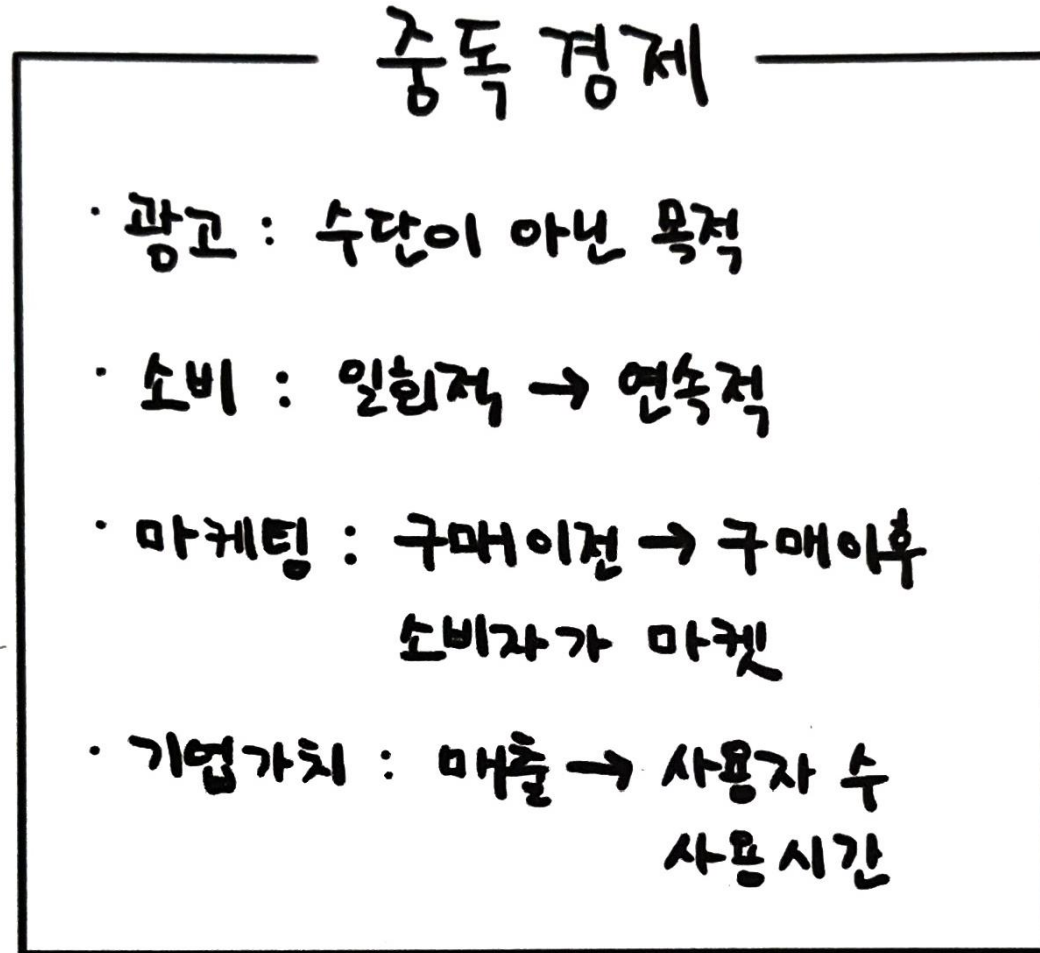 중독 경제
· 광고 : 수단이 아닌 목적
· 소비 : 일회적 → 연속적
· 마케팅 : 구매이전 → 구매이후
소비자가 마켓
· 기업가치 : 매출 → 사용자 수
사용시간